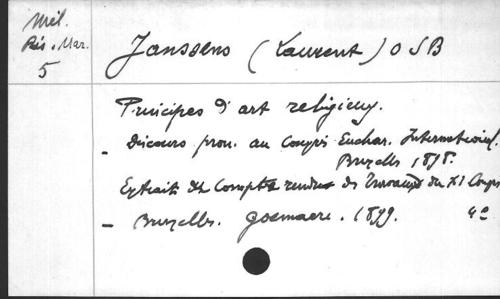 Mél.
Rés. Mar.
5
Janssens (Laurent) OSB
Principes d'art religieux.
- Discours pron. au Congrès Euchar. International.
Bruxelles 1898.
Extrait des Comptes rendus des Travaux du XI Congrès
- Bruxelles. Goemaere. 1899. 4°